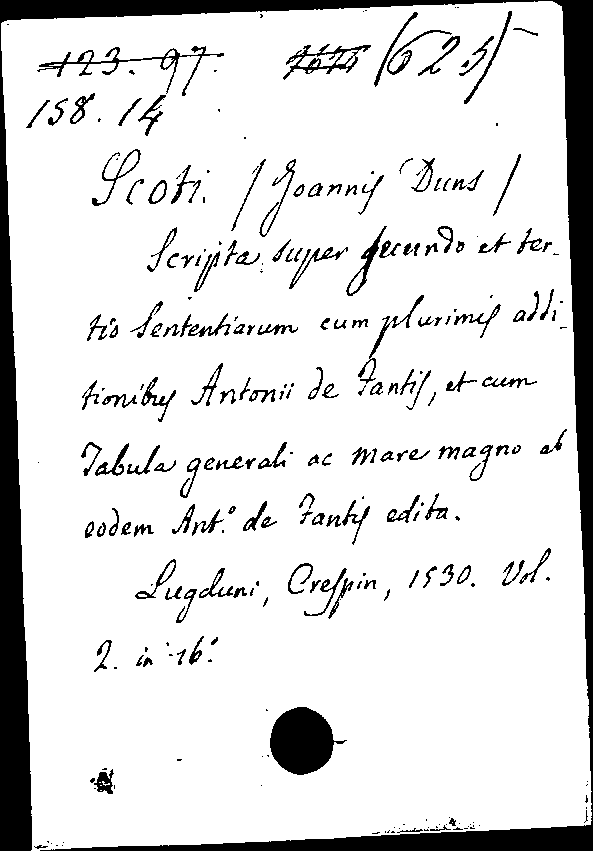 123. 97. (625)
158. 14
Scoti. / Joannis Duns /
Scripta super secundo et ter-
tio Sententiarum cum plurimis addi-
tionibus Antonii de Fantis, et cum
Tabula generali ac mare magno ab
eodem Ant.º de Fantis edita.
Lugduni, Crespin, 1530. Vol.
2. in 16.º